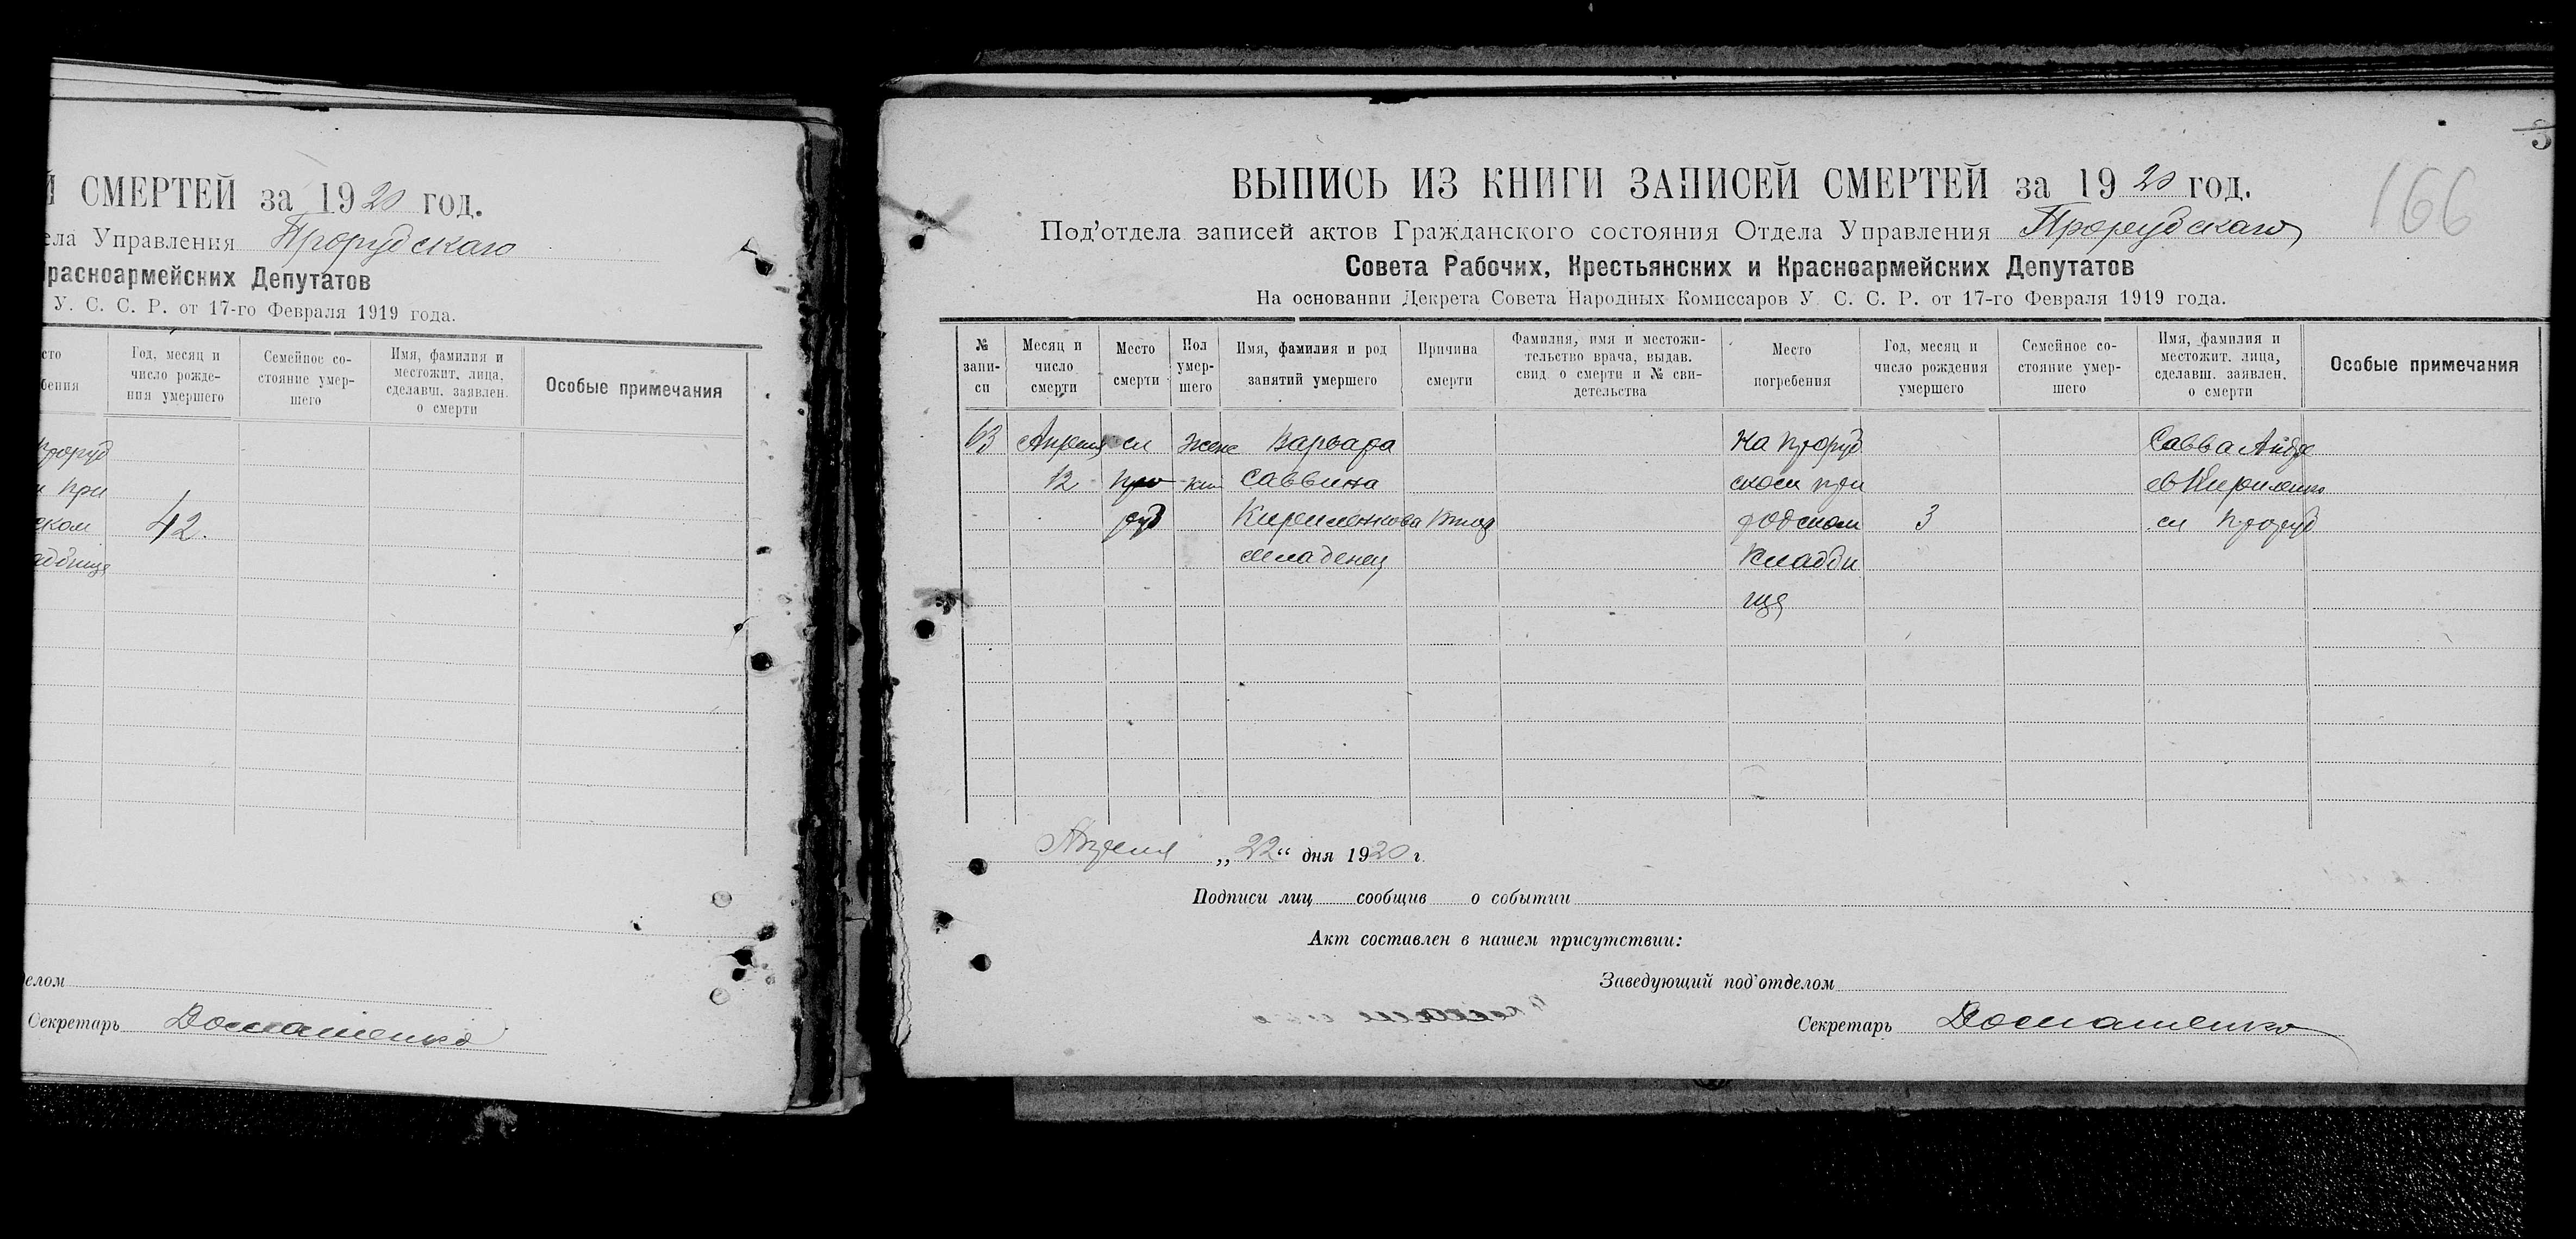 СМЕРТЕЙ за 1920 год.
Управления Прорубскаго
Депутатов
У. С. С. Р. от 17-го Февраля 1919 года.
Год, месяц и число рожде- ния умершего
Семейное со- стояние умер- шего
Имя, фамилия и местожит. лица, сделавш. заявлен. о смерти
Особые примечания
при
42.
Секретарь Домашенко
166
ВЫПИСЬ ИЗ КНИГИ ЗАПИСЕЙ СМЕРТЕЙ за 1920 год.
Под’отдела записей актов Гражданского состояния Отдела Управления Прорубскаго
Совета Рабочих, Крестьянских и Красноармейских Депутатов
На основании Декрета Совета Народных Комиссаров У. С. С. Р. от 17-го Февраля 1919 года.
№ запи- си
Месяц и число смерти
Место смерти
Пол умер- шего
Имя, фамилия и род занятий умершего
Причина смерти
Фамилия, имя и местожи- тельство врача, выдав. свид о смерти и № сви- детельства
Место погребения
Год, месяц и число рождения умершего
Семейное со- стояние умер- шего
Имя, фамилия и местожит. лица, сделавш. заявлен. о смерти
Особые примечания
63 Апреля сл женс Варвара На проруб Савва Андр
12 про кий Саввина ском при
руб Кириленкова 3 сл проруб
младенец Кладби
ще
Апреля „22“ дня 1920 г.
Подписи лиц сообщив о событии
Акт составлен в нашем присутствии:
Заведующий под’отделом
Секретарь Домашенко